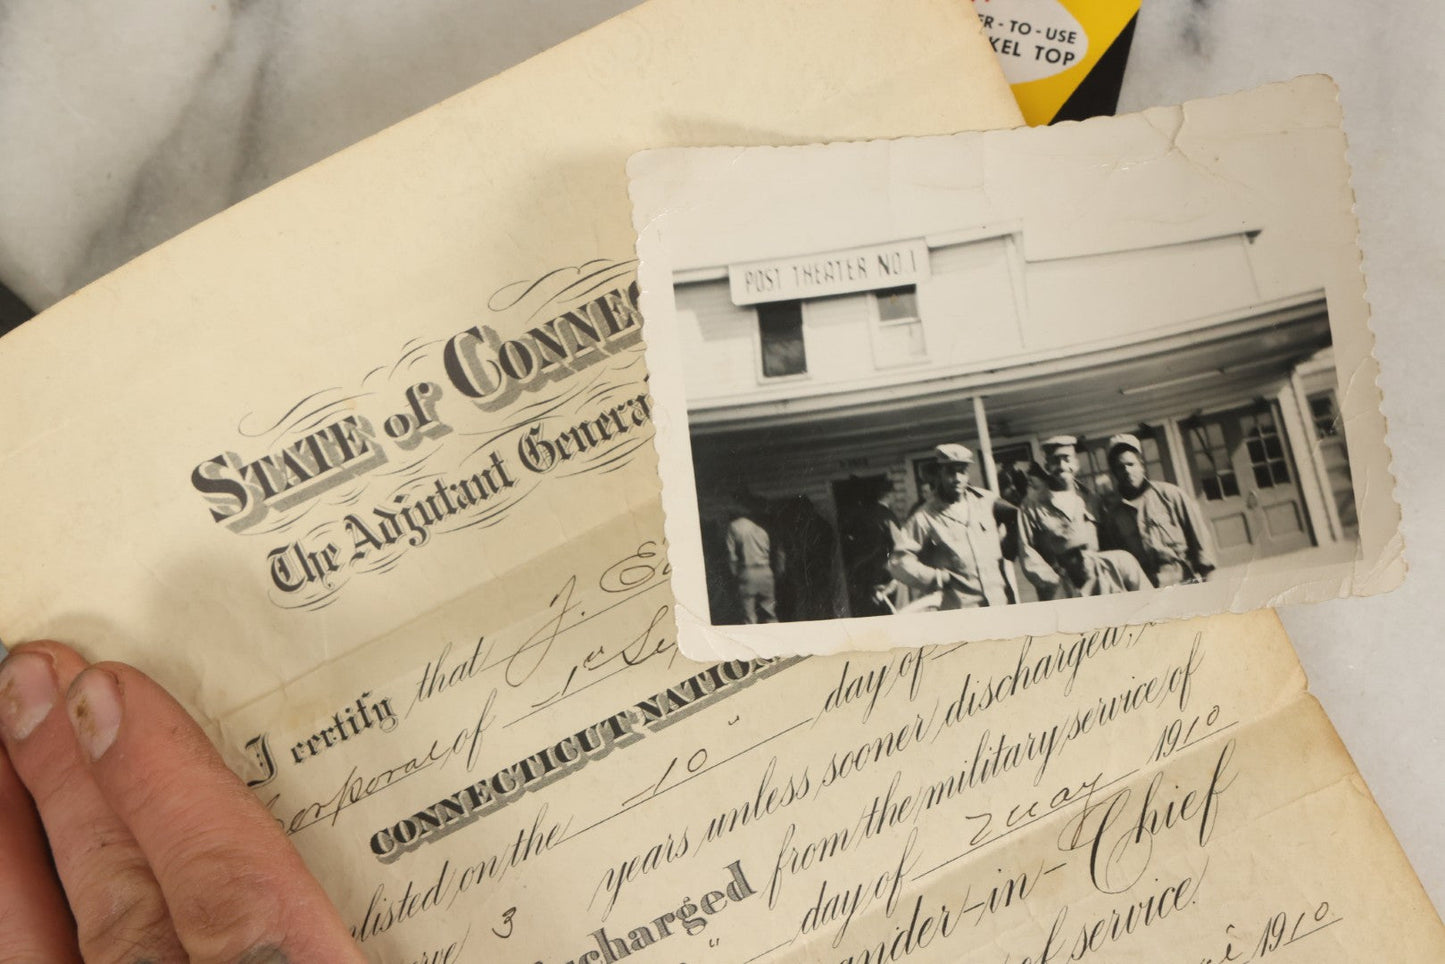 ER-TO-USE
KEL TOP
POST THEATER NO.1
STATE of CONNEC
The Adjutant General
I certify that J.
Corporal of 1st Sep
CONNECTICUT NATION
nlisted on the 10 " day of
rve 3 years unless sooner discharged,
scharged from the military service of
" day of May 1910
ander-in-Chief
of service.
1910